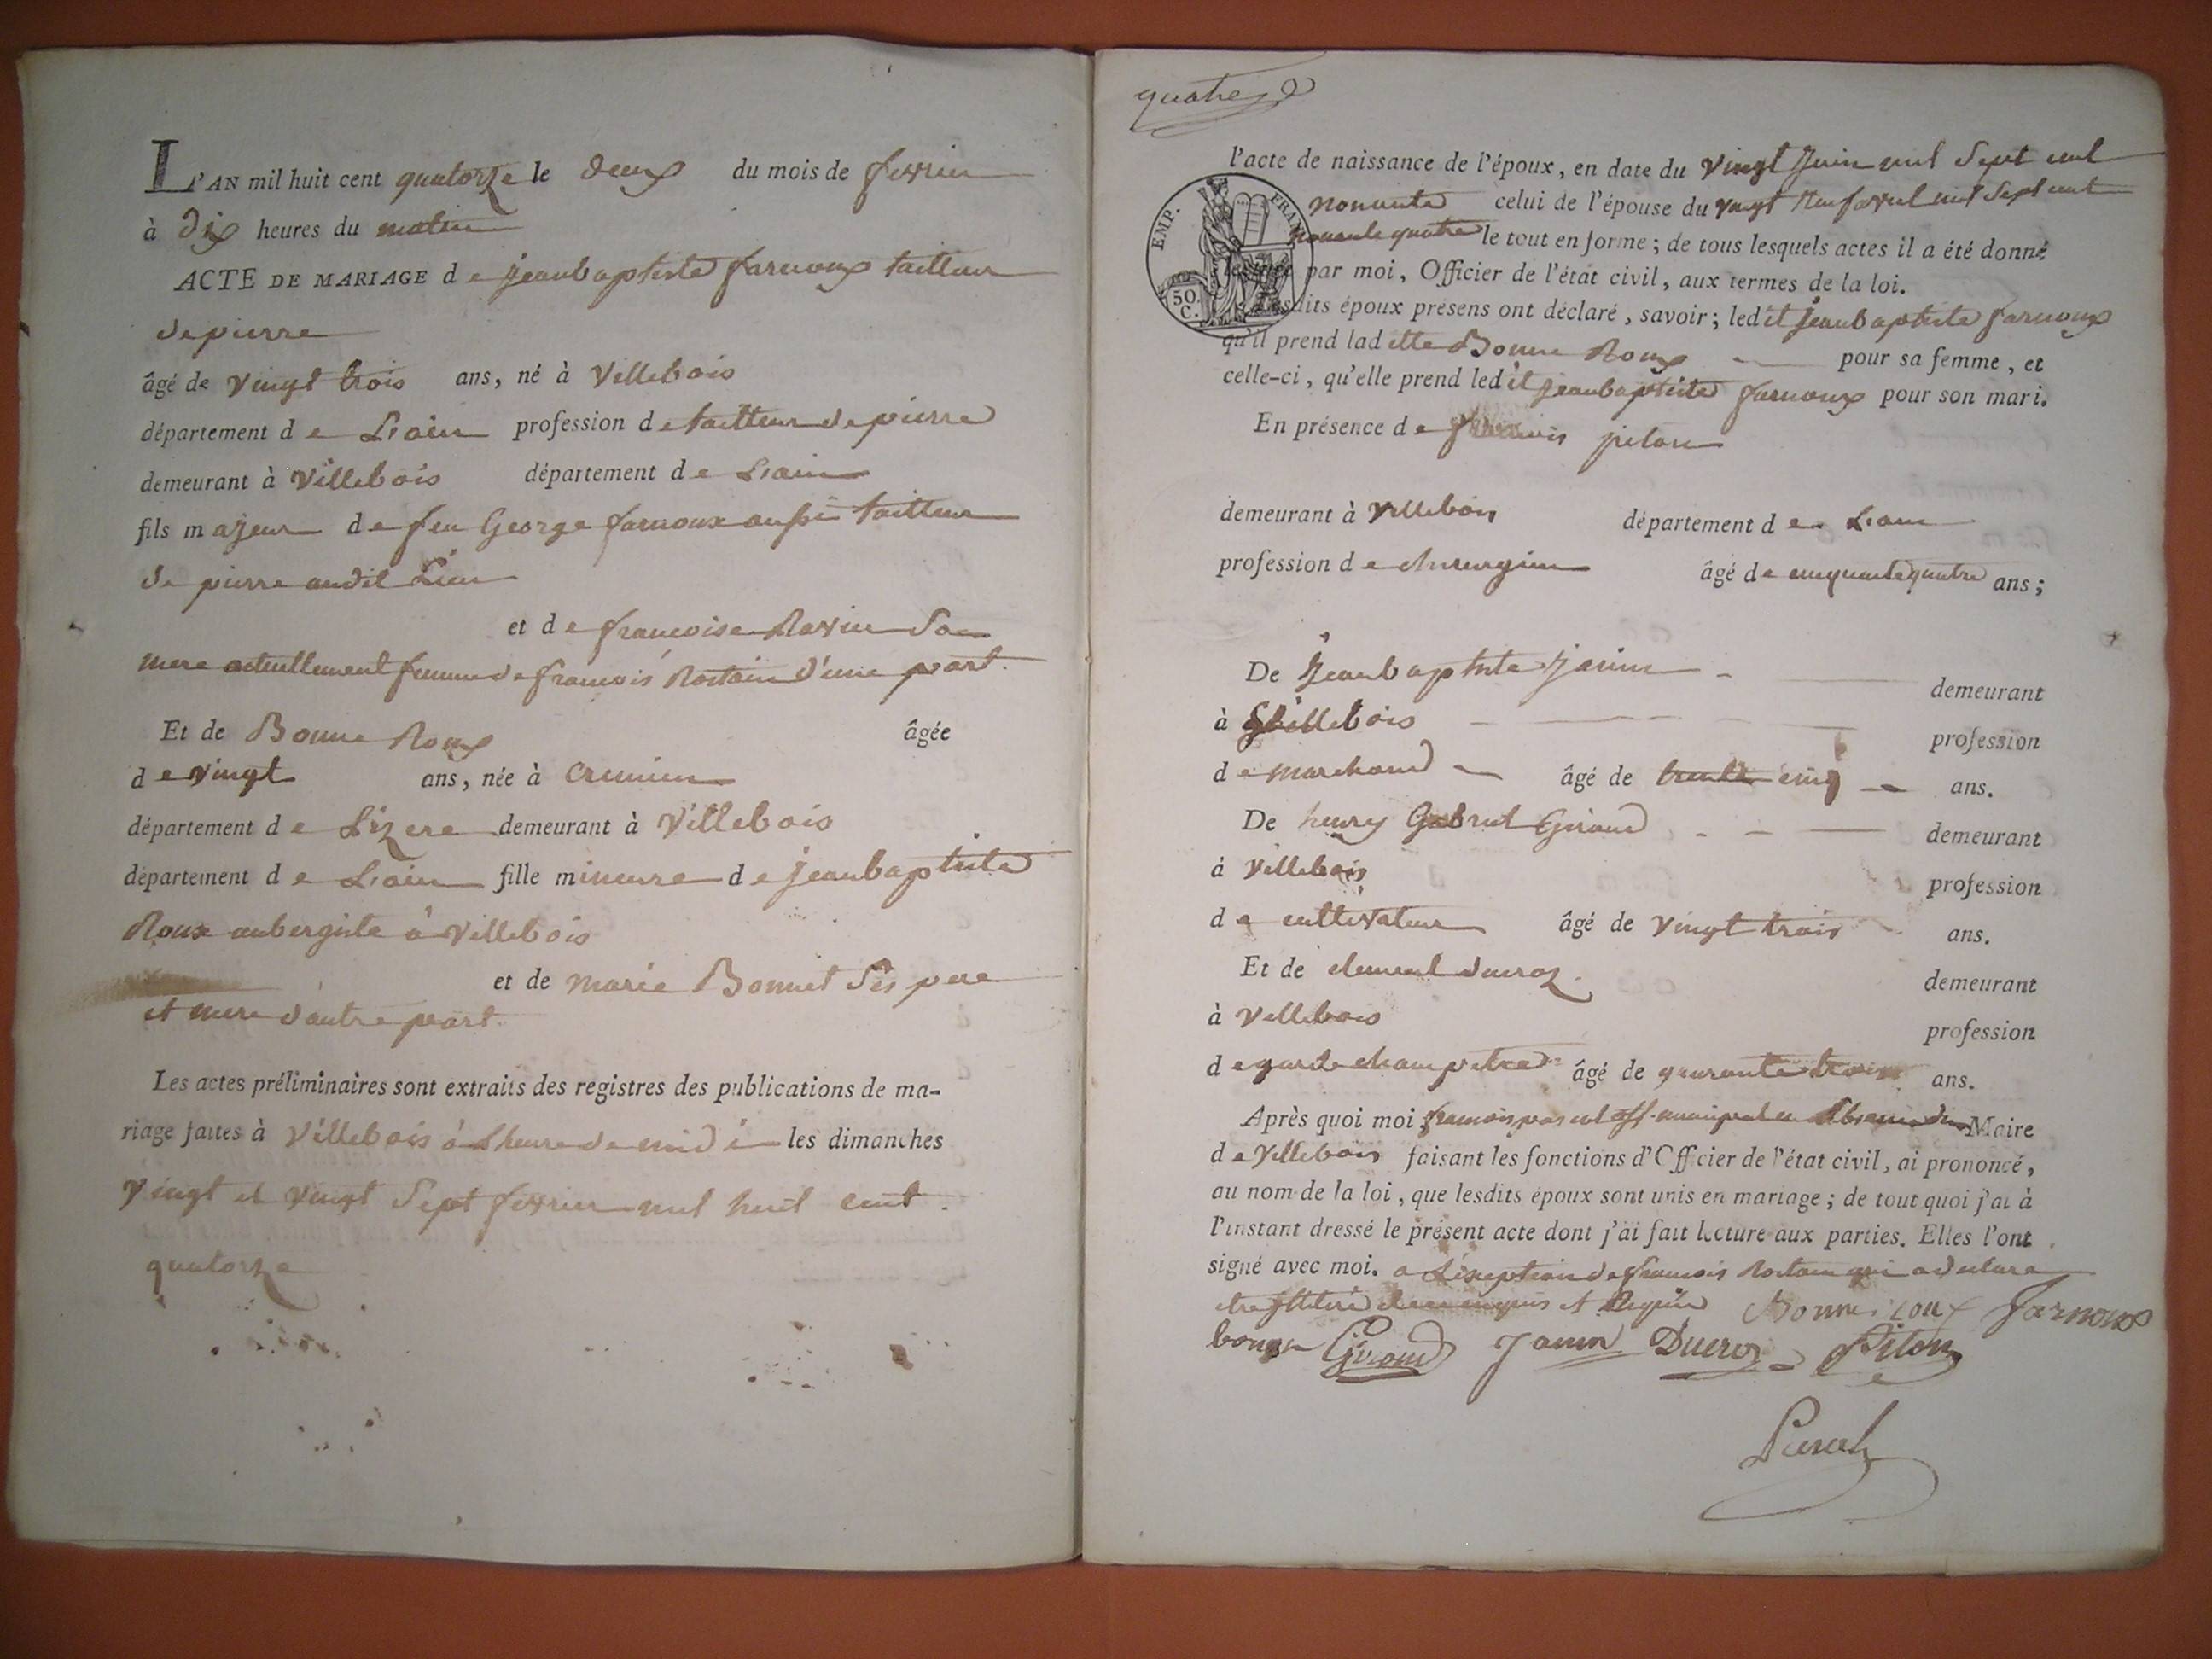 L'AN mil huit cent quatorze le deux du mois de fevrier
à dix heures du matin
ACTE DE MARIAGE de jeanbaptiste farnoux tailleur
de pierre
âgé de vingt trois ans, né à Villebois
département de L'ain profession de tailleur de pierre
demeurant à Villebois département de L'ain
fils majeur de feu George farnoux aussi tailleur
de pierre audit Lieu
et de francoise Ravier Sa
mere actuellement femme de francois Rostain d'une part.
Et de Bonne Roux âgée
de vingt ans, née à Cremieu
département de L'izere demeurant à Villebois
département de L'ain fille mineure de jeanbaptiste
Roux aubergiste à Villebois
et de marie Bonnet Ses pere
et mere d'autre part.
Les actes préliminaires sont extraits des registres des publications de ma-
riage faites à Villebois à L'heure de midi les dimanches
vingt et vingt Sept fevrier mil huit cent
quatorze
quatre
l'acte de naissance de l'époux, en date du vingt Juin mil Sept cent
EMP. FRAN
nonante celui de l'épouse du vingt neuf avril mil Sept cent
nonante quatre le tout en forme ; de tous lesquels actes il a été donné
par moi, Officier de l'état civil, aux termes de la loi.
50 C.
dits époux présens ont déclaré, savoir ; ledit jeanbaptiste farnoux
qu'il prend ladette Bonne Roux pour sa femme, et
celle-ci, qu'elle prend ledit jeanbaptiste farnoux pour son mari.
En présence de francois pilon
demeurant à Villebois département de L'ain
profession de chirurgien âgé de cinquante quatre ans ;
De Jeanbaptiste janin demeurant
à Villebois profession
de marchand âgé de trente cinq ans.
De henry Gabriel Giroud demeurant
à Villebois profession
de cultivateur âgé de vingt trois ans.
Et de clement ducroz demeurant
à Villebois profession
de garde champetre âgé de quarante trois ans.
Après quoi moi francois pascal off. municipal en Absence du Maire
de Villebois faisant les fonctions d'Officier de l'état civil, ai prononcé,
au nom de la loi, que lesdits époux sont unis en mariage ; de tout quoi j'ai à
l'instant dressé le présent acte dont j'ai fait lecture aux parties. Elles l'ont
signé avec moi. a L'exeption de francois Rostain qui a declare
et Requis Bonne roux farnoux
Giroud Janin Ducroz Pilon
Pascal